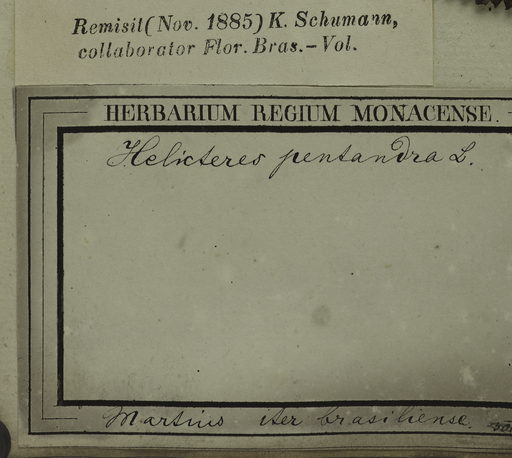 Remisit (Nov. 1885) K. Schumann,
collaborator Flor. Bras. – Vol.
HERBARIUM REGIUM MONACENSE.
Helicteres pentandra L.
Martius iter brasiliense.